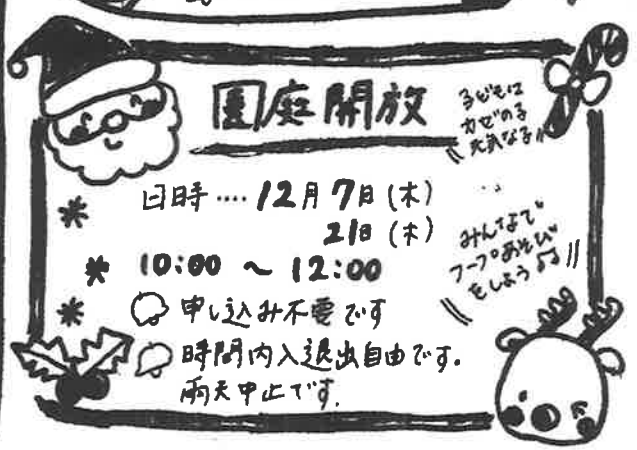 園庭開放
子どもは
かぜの子
元気な子!!
日時‥‥12月7日(木)
21日(木)
10:00 ~ 12:00
みんなで
フープあそび
をしよう♫!!
申し込み不要です
時間内入退出自由です。
雨天中止です。